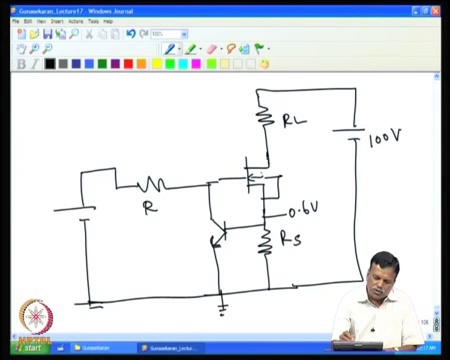 Gunasekaran_Lecture17 - Windows Journal
File Edit View Insert Actions Tools Help
100%
B I
RL
100V
R
0.6V
RS
NPTEL
start
Gunasekaran
Gunasekaran_Lectu...